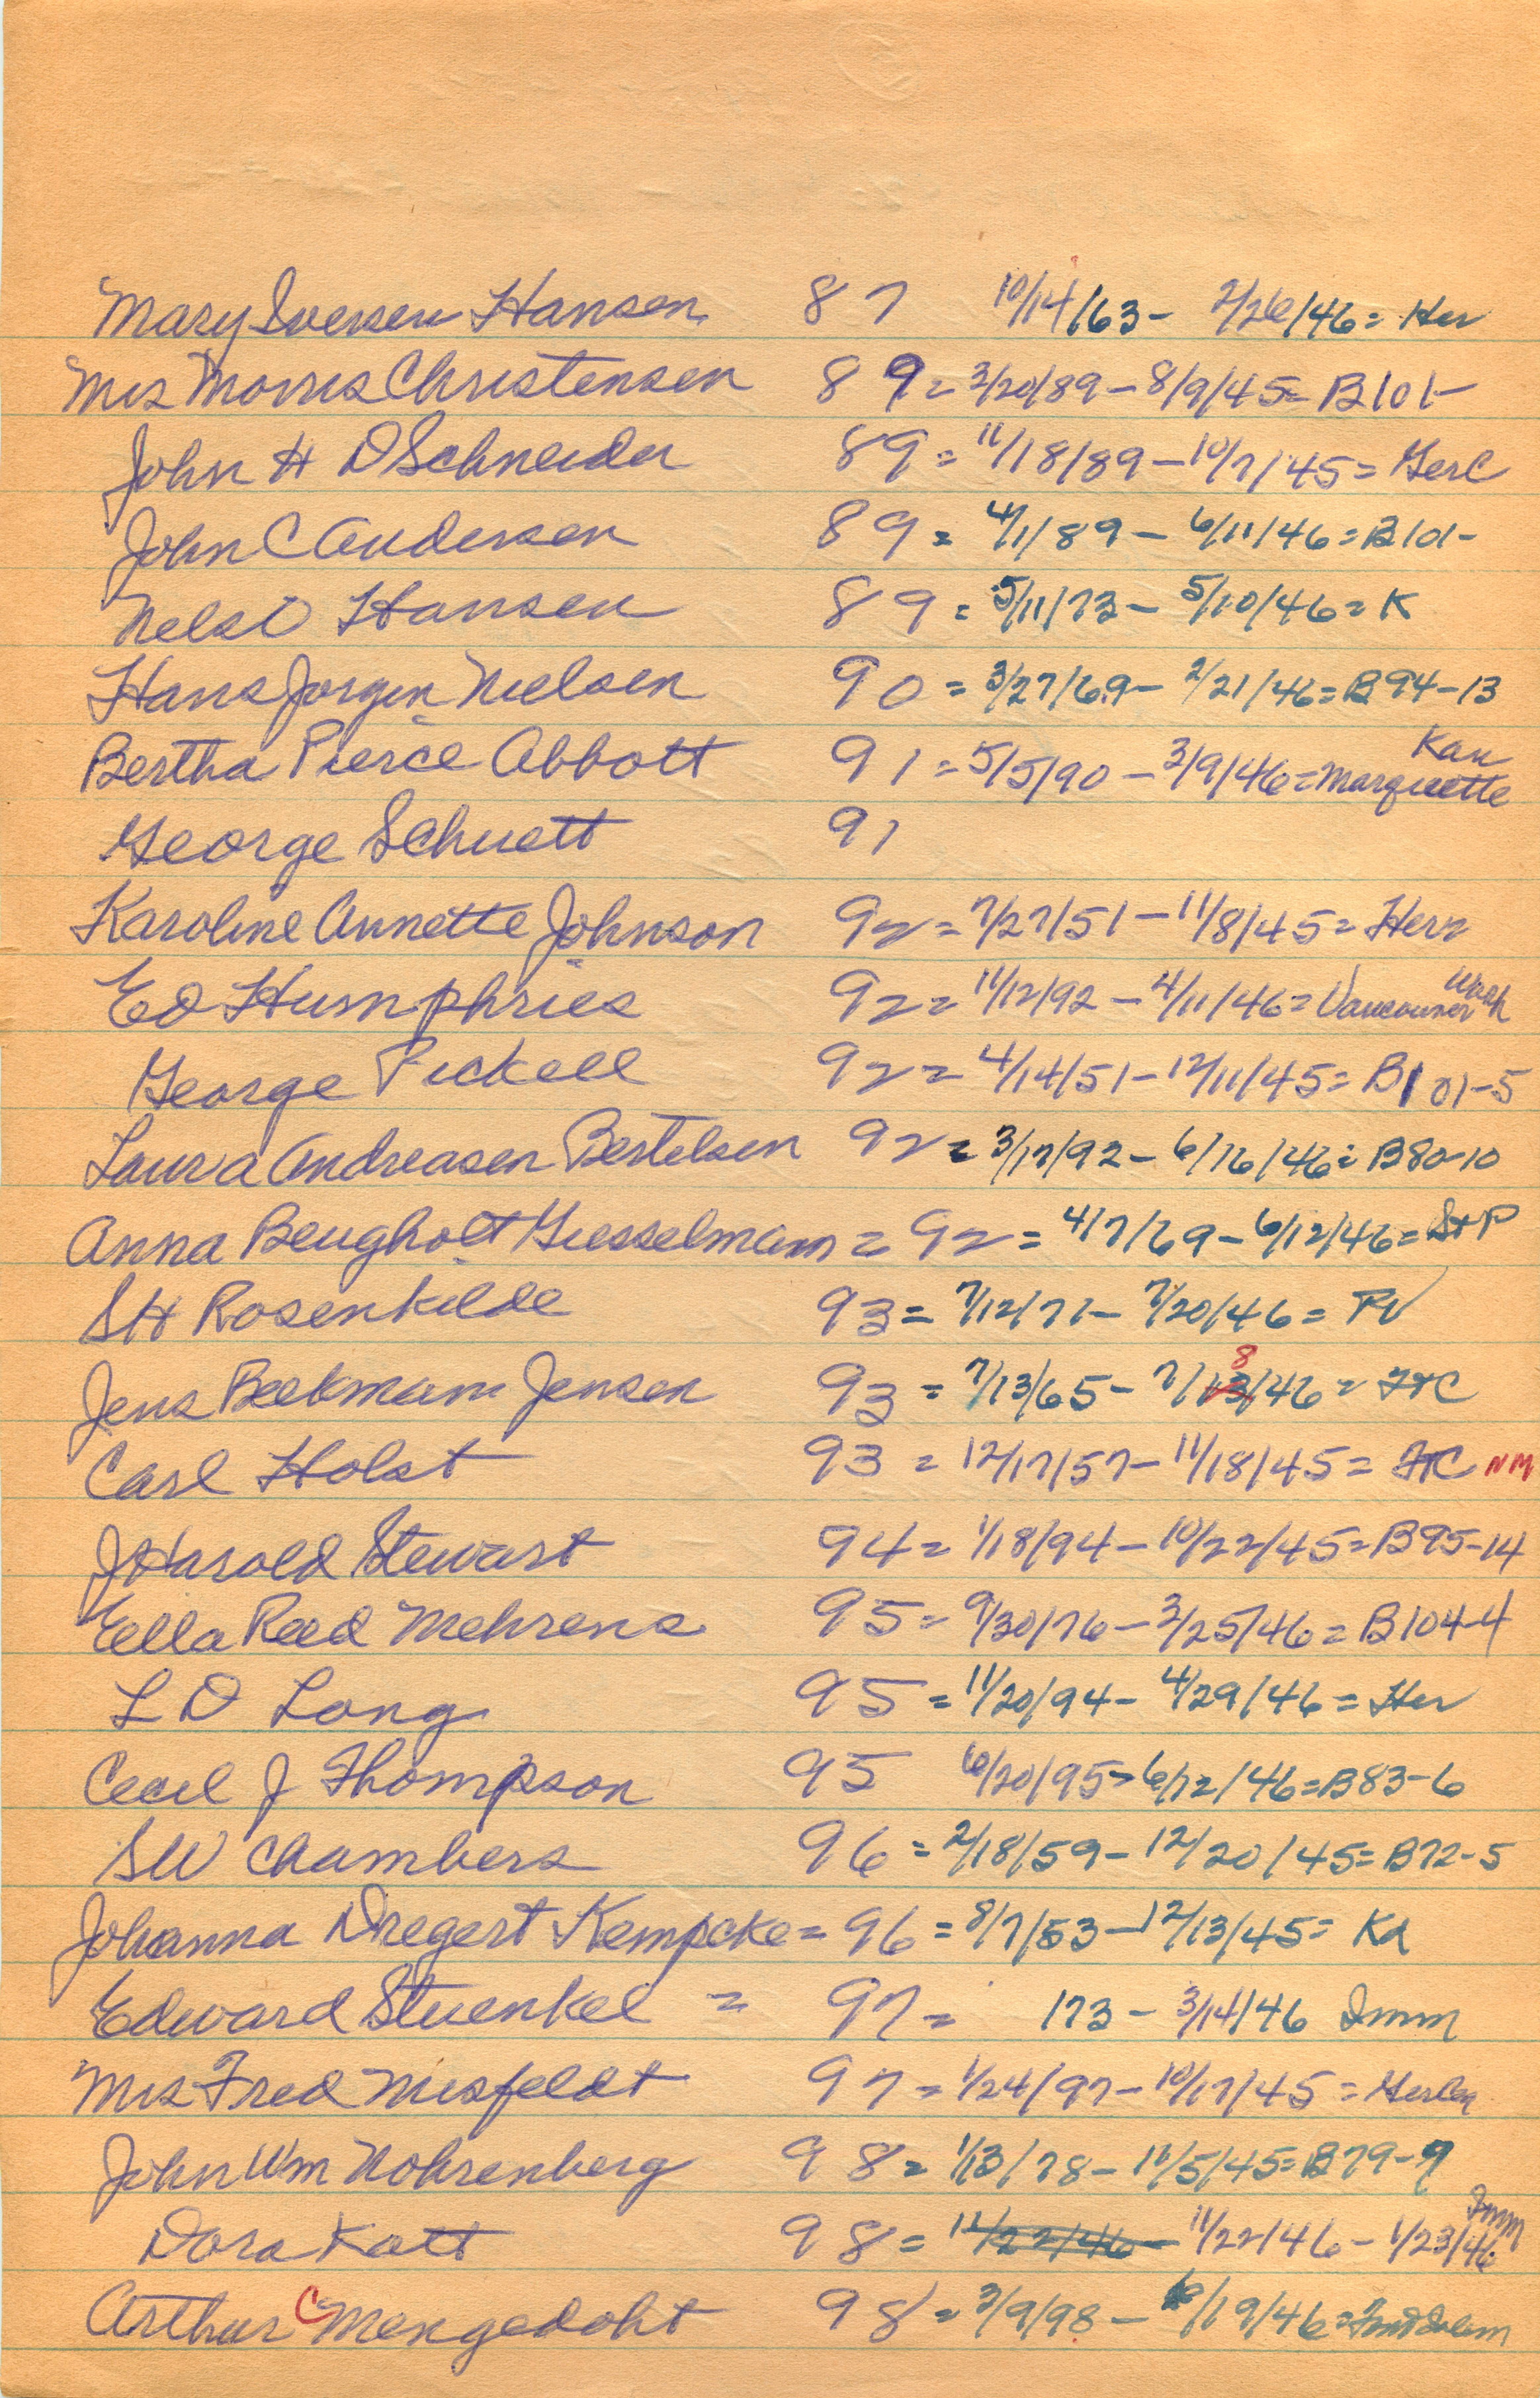 Mary Iversen Hansen 87 10/14/63 - 2/26/46 = Her
Mrs Morris Christensen 89 = 3/20/89 - 8/9/45 = B101-
John H D Schneider 89 = 11/18/89 - 10/7/45 = GerC
John C Andersen 89 = 4/1/89 - 6/11/46 = B101-
Nels O Hansen 89 = 5/11/73 - 5/10/46 = K
Hans Jorgen Nielsen 90 = 3/27/69 - 2/21/46 = B94-13
Bertha Pierce Abbott 91 = 5/5/90 - 3/9/46 = Marquette Kan
George Schuett 91
Karoline Annette Johnson 92 = 7/27/51 - 11/8/45 = Her
Ed Humphries 92 = 11/12/92 - 4/11/46 = Vancouver Wash
George Pickell 92 = 4/14/51 - 12/11/45 = B101-5
Laura Andreasen Bertelsen 92 = 3/17/92 - 6/16/46 = B80-10
Anna Beugholt Giesselmann = 92 = 4/7/69 - 6/12/46 = StP
SH Rosenkilde 93 = 7/12/71 - 7/20/46 = FV
Jens Beekmann Jensen 93 = 7/13/65 - 7/13/46 = FtC 8
Carl Holst 93 = 12/17/57 - 11/18/45 = FtC NM
J Harold Stewart 94 = 1/18/94 - 10/22/45 = B95-14
Eella Reed Mehrens 95 = 9/30/76 - 3/25/46 = B104-4
L D Long 95 = 11/20/94 - 4/29/46 = Her
Cecil J Thompson 95 6/20/95 - 6/12/46 = B83-6
SW Chambers 96 = 2/18/59 - 12/20/45 = B72-5
Johanna Dregert Kempcke = 96 = 8/7/53 - 12/13/45 = Ka
Edward Stuenkel = 97 = 173 - 3/14/46 Imm
Mrs Fred Misfeldt 97 = 1/24/97 - 10/17/45 = GerCem
John Wm Nohrenberg 98 = 1/3/78 - 11/5/45 = B79-9
Dora Katt 98 = 11/22/46 - 11/22/46 - 1/23/46 Imm
Arthur C Mengedoht 98 = 3/9/98 - 6/19/46 =